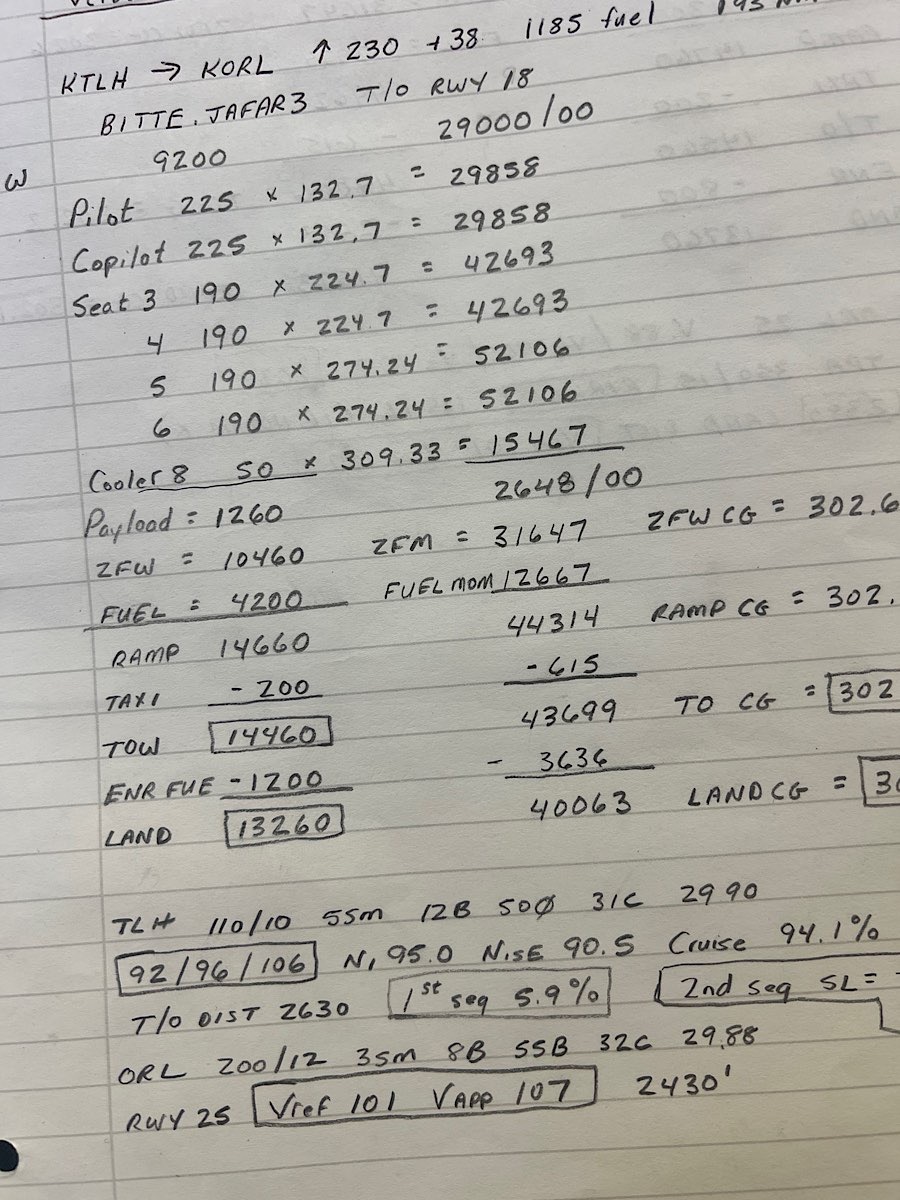 KTLH → KORL ↑ 230 +38 1185 fuel 193
BITTE.JAFAR3 T/O RWY 18
W 9200 29000/00
Pilot 225 x 132.7 = 29858
Copilot 225 x 132.7 = 29858
Seat 3 190 x 224.7 = 42693
4 190 x 224.7 = 42693
5 190 x 274.24 = 52106
6 190 x 274.24 = 52106
Cooler 8 50 x 309.33 = 15467
2648/00
Payload = 1260
ZFW = 10460 ZFM = 31647 ZFW CG = 302.6
FUEL = 4200 FUEL MOM 12667
RAMP 14660 44314 RAMP CG = 302.
TAXI - 200 - 615
TOW 14460 43699 TO CG = 302
ENR FUE - 1200 - 3636
LAND 13260 40063 LAND CG = 30
TLH 110/10 5SM 12B 50Ø 31C 2990
92/96/106 N1 95.0 N1SE 90.5 Cruise 94.1%
T/O DIST 2630 1st seg 5.9% 2nd seg SL=
ORL 200/12 3SM 8B 55B 32C 29.88
RWY 25 Vref 101 VAPP 107 2430'